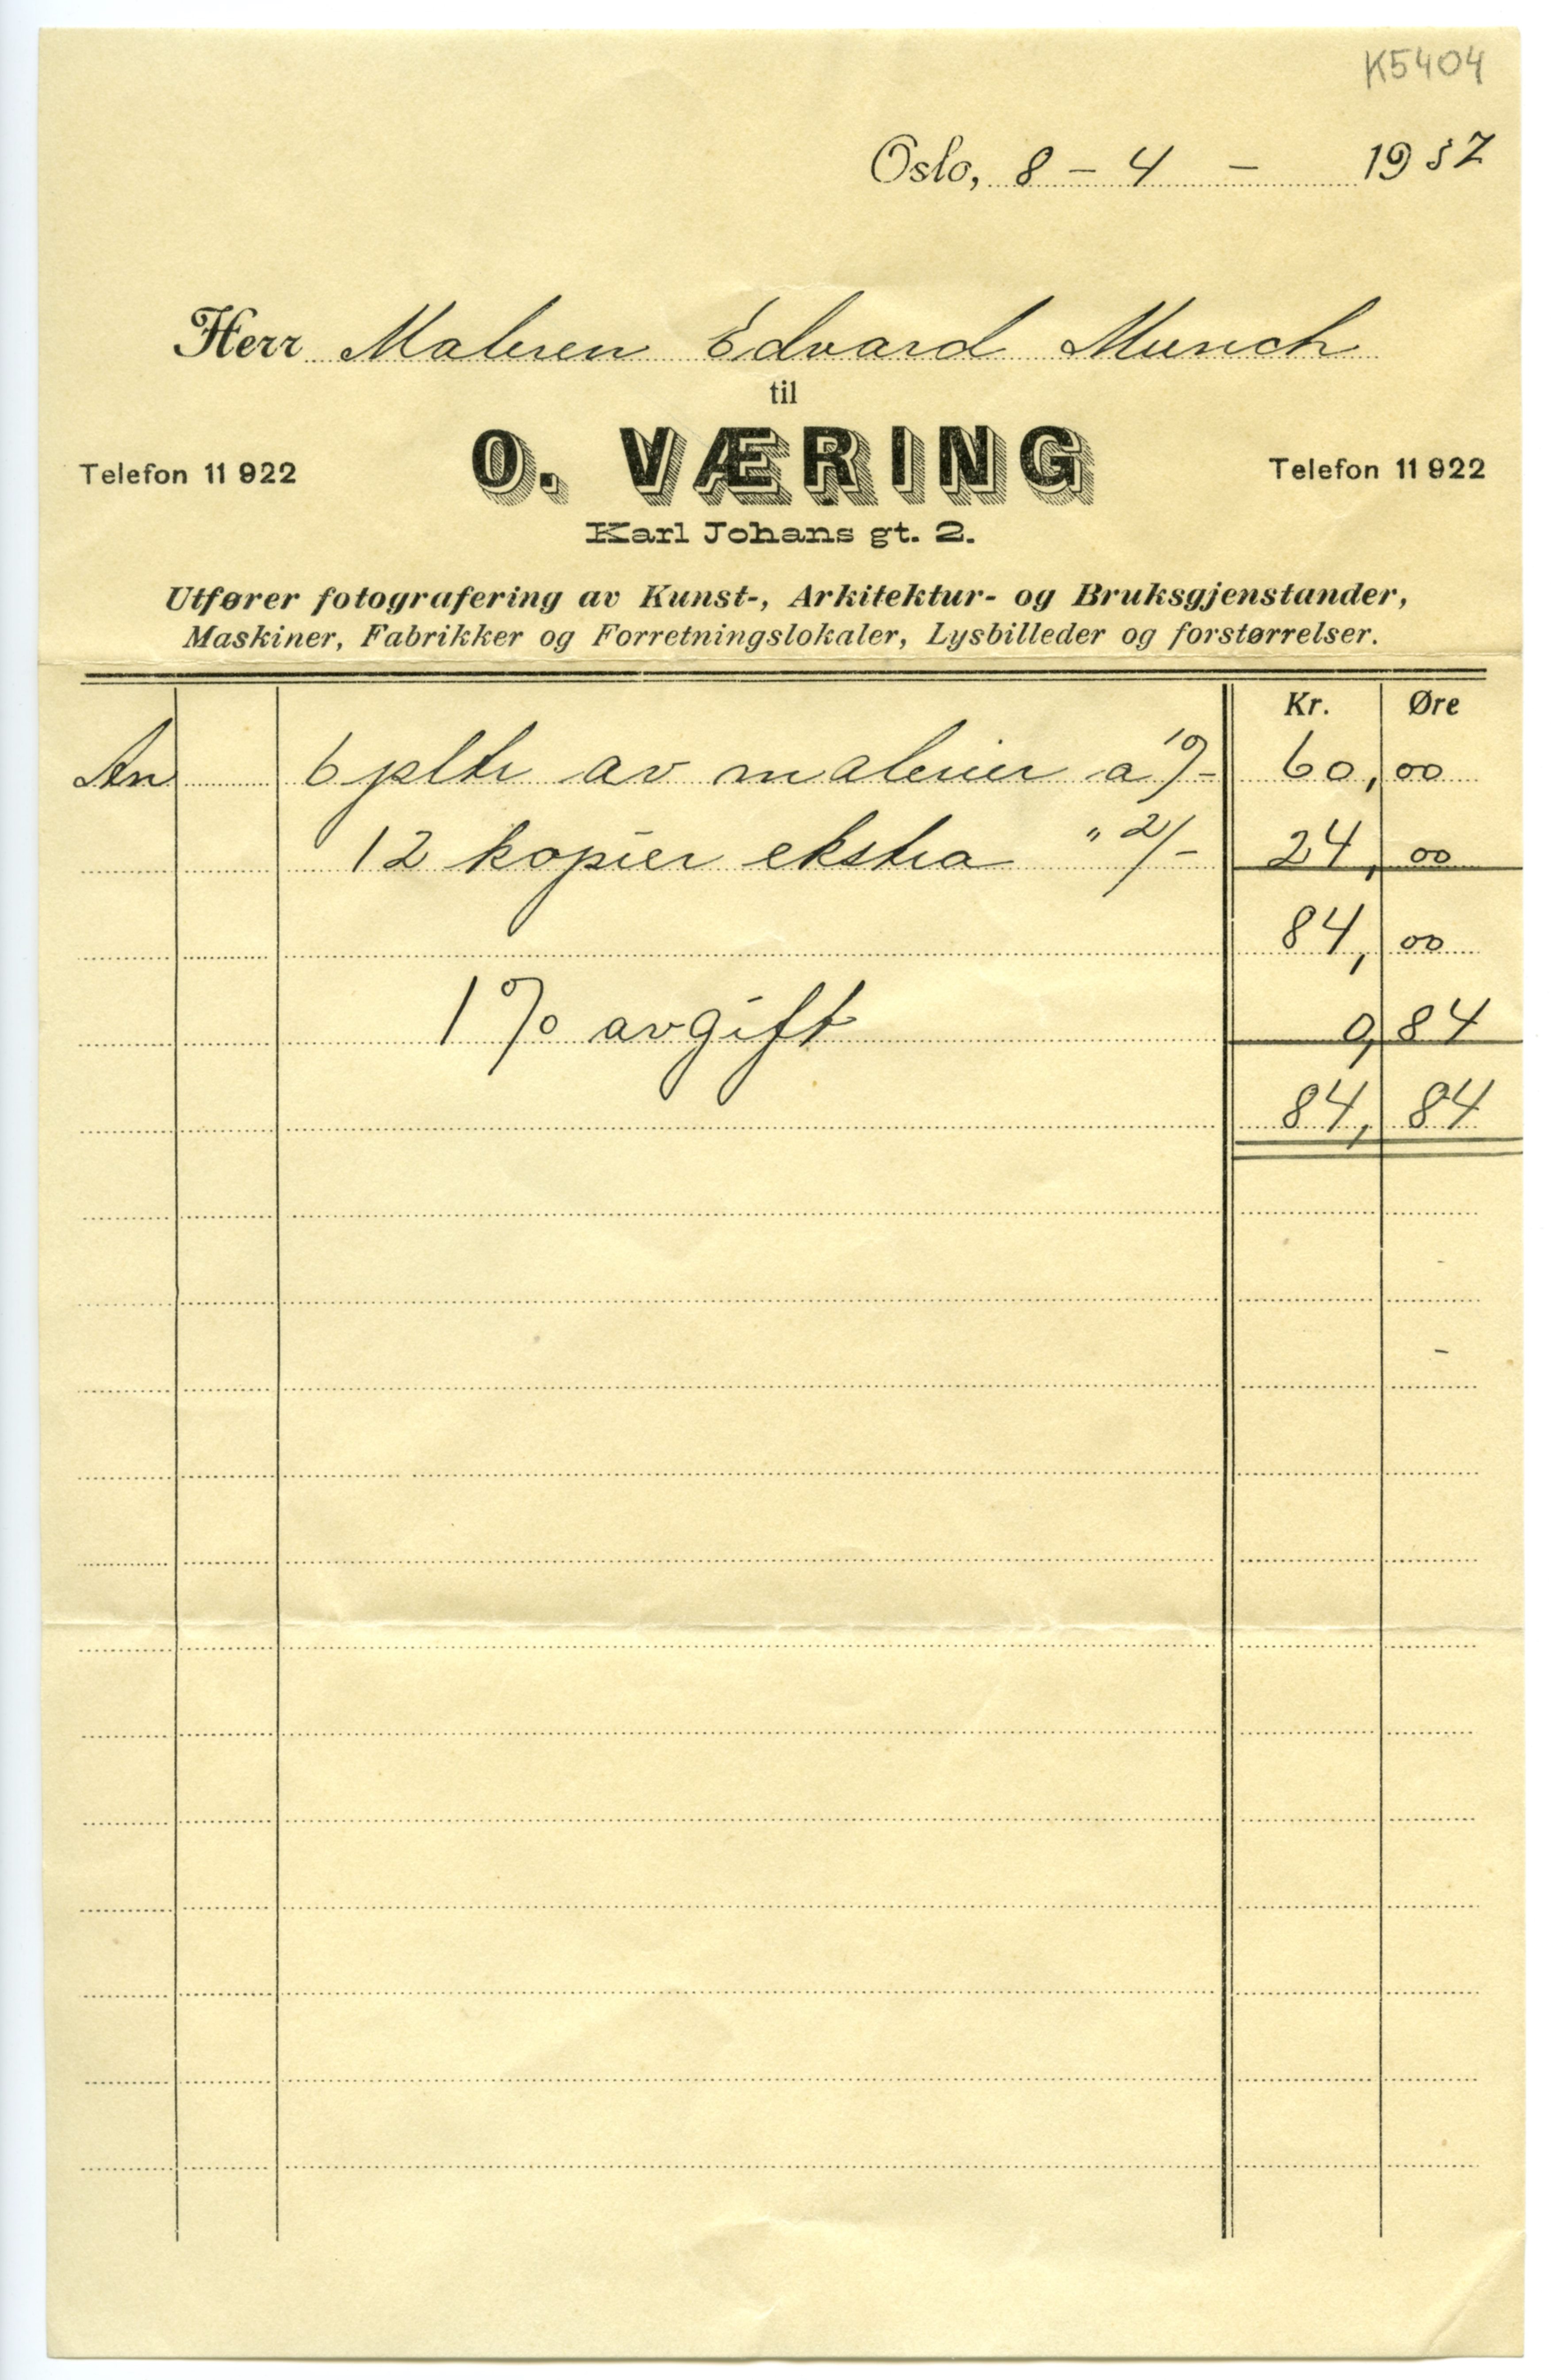 K5404
Oslo, 8 - 4 - 1937
Herr Maleren Edvard Munch
til
Telefon 11 922 O. VÆRING Telefon 11 922
Karl Johans gt. 2.
Utfører fotografering av Kunst-, Arkitektur- og Bruksgjenstander,
Maskiner, Fabrikker og Forretningslokaler, Lysbilleder og forstørrelser.
Kr. Øre
An 6 pltr av malerier a 10/- 60, 00
12 kopier ekstra " 2/- 24, 00
84, 00
1 % avgift 0, 84
84, 84